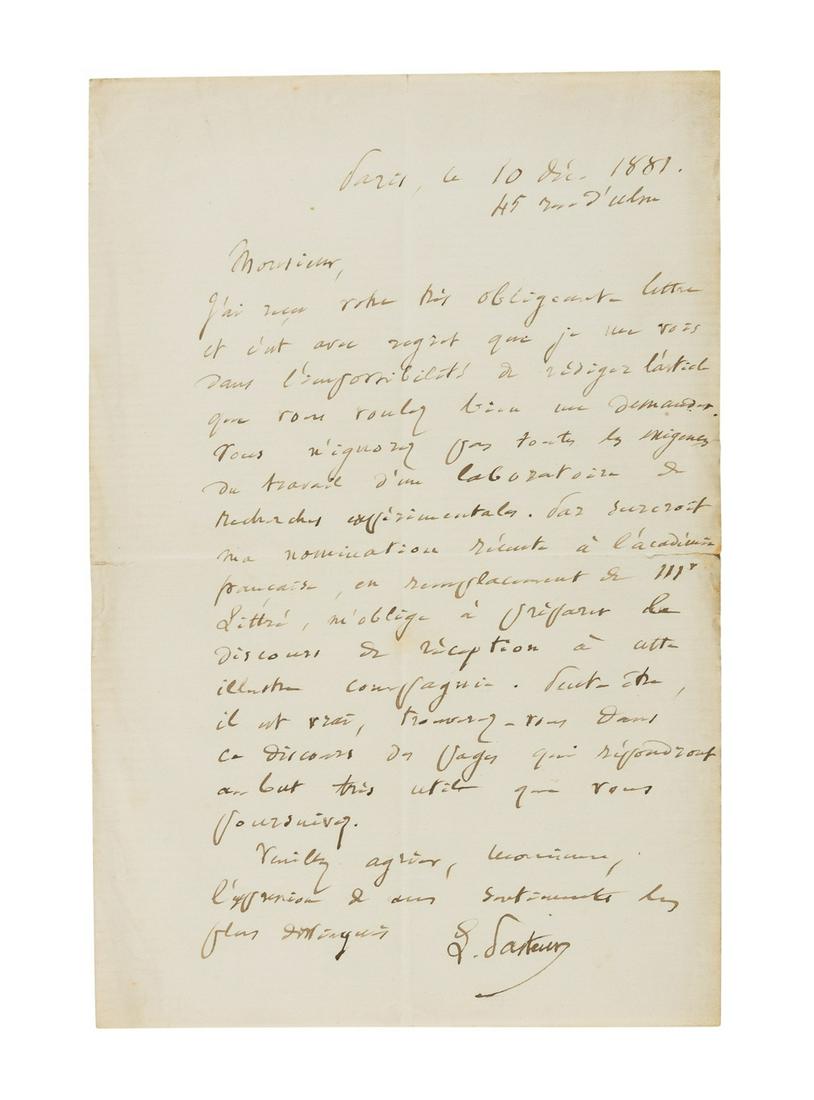 Paris, le 10 déc. 1881.
45 rue d'Ulm
Monsieur,
J'ai reçu votre très obligeante lettre
et c'est avec regret que je me vois
dans l'impossibilité de rédiger l'article
que vous voulez bien me demander.
Vous n'ignorez pas toutes les exigences
du travail d'un laboratoire de
recherches expérimentales. Par surcroît
ma nomination récente à l'académie
française, en remplacement de Mr
Littré, m'oblige à préparer le
discours de réception à cette
illustre compagnie. Peut-être,
il est vrai, trouverez-vous dans
ce discours des pages qui répondront
au but très utile que vous
poursuivez.
Veuillez agréer, monsieur,
l'expression de mes sentiments les
plus distingués
L. Pasteur